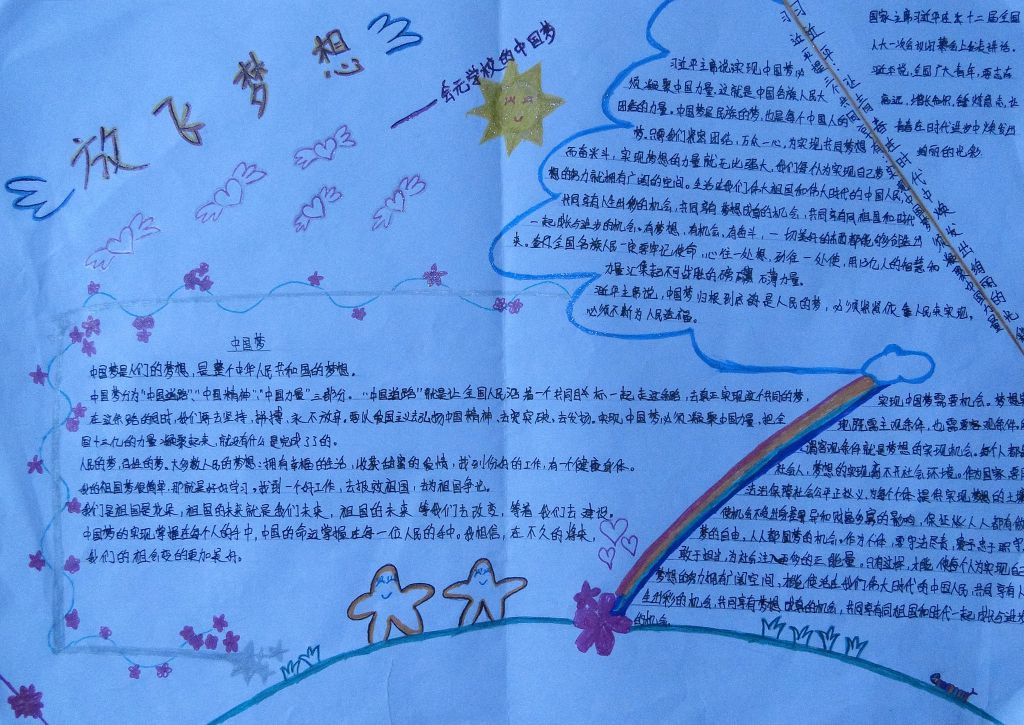 放飞梦想
——会元学校的中国梦
国家主席习近平在第十二届全国
人大一次会议闭幕会上发表讲话。
习近平说,全国广大青年,要志存
高远,增长知识,锤炼意志,让
青春在时代进步中焕发出
绚丽的光彩.
习近平主席说实现中国梦必
须凝聚中国力量,这就是中国各族人民大
团结的力量。中国梦是民族的梦,也是每个中国人的
梦。只要我们紧密团结,万众一心,为实现共同梦想
而奋斗,实现梦想的力量就无比强大,我们每个人为实现自己梦
想的努力就拥有广阔的空间。生活在我们伟大祖国和伟大时代的中国人民,
共同享有人生出彩的机会,共同享有梦想成真的机会,共同享有同祖国和时代
一起成长与进步的机会。有梦想,有机会,有奋斗,一切美好的东西都能够创造出
来。全国各族人民一定要牢记使命,心往一处想,劲往一处使,用13亿人的智慧和
力量汇集起不可战胜的磅礴力量。
习近平主席说,中国梦归根到底是人民的梦,必须紧紧依靠人民来实现,
必须不断为人民造福。
中国梦
中国梦是人们的梦想,是整个中华人民共和国的梦想.
中国梦分为"中国道路","中国精神","中国力量"三部分。"中国道路"就是让全国人民沿着一个共同目标一起走这条路,去真正实现这个共同的梦,
在这条路的同时,我们要去坚持,拼搏,永不放弃。要以爱国主义去弘扬中国精神,去突破,去发扬。实现中国梦必须凝聚中国力量,把全
国十三亿的力量凝聚起来,就没有什么是完成不了的。
人民的梦,百姓的梦。大多数人民的梦想:拥有幸福的生活,收获甜蜜的爱情,找到份好的工作,有一个健康身体。
我的祖国梦很简单,那就是好好学习。找到一个好工作,去报效祖国,去为祖国争光。
我们是祖国是花朵,祖国的未来就是我们未来,祖国的未来等我们去改变,等着我们去建设。
中国梦的实现,掌握在每个人的手中,中国的命运掌握在每一位人民的手中。我相信,在不久的将来,
我们的祖国变的更加美好。
实现中国梦需要机会。梦想实
现,既需主观条件,也需要客观条件,
客观条件就是梦想的实现机会。每个人都是
社会人,梦想的实现离不开社会环境。作为国家,要用
法治保障社会公平正义,为每个人提供实现梦想的土壤
使机会不因出身差异和贫富分离的影响,保证让人人都有做
梦的自由,人人都圆梦的机会。作为个体,要守法尽责,乘于忠于职守
敢于担当,为社会注入更多的正能量。只有这样,才能使每个人为实现自己
梦想的努力拥有广阔空间,才能使生活在我们伟大时代的中国人民,共同享有人
生出彩的机会,共同享有梦想成真的机会,共同享有同祖国和时代一起成长与进步
的机会。